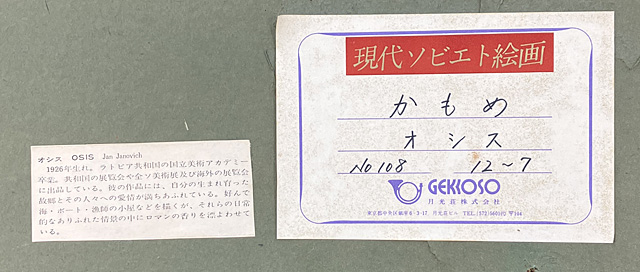 オシス OSIS Jan Janovich
1926年生れ。ラトビア共和国の国立美術アカデミー
卒業。共和国の展覧会や全ソ美術展及び海外の展覧会
に出品している。彼の作品には、自分の生まれ育った
故郷とその人々への愛情が満ちあふれている。好んで
海・ボート・漁師の小屋などを描くが、それらの日常
的なありふれた情景の中にロマンの香りを漂よわせて
いる。
現代ソビエト絵画
かもめ
オシス
No 108 12~7
GEKKOSO
月光荘株式会社
東京都中央区銀座6-3-17. 月光荘ビル TEL.(572)5605 〒104